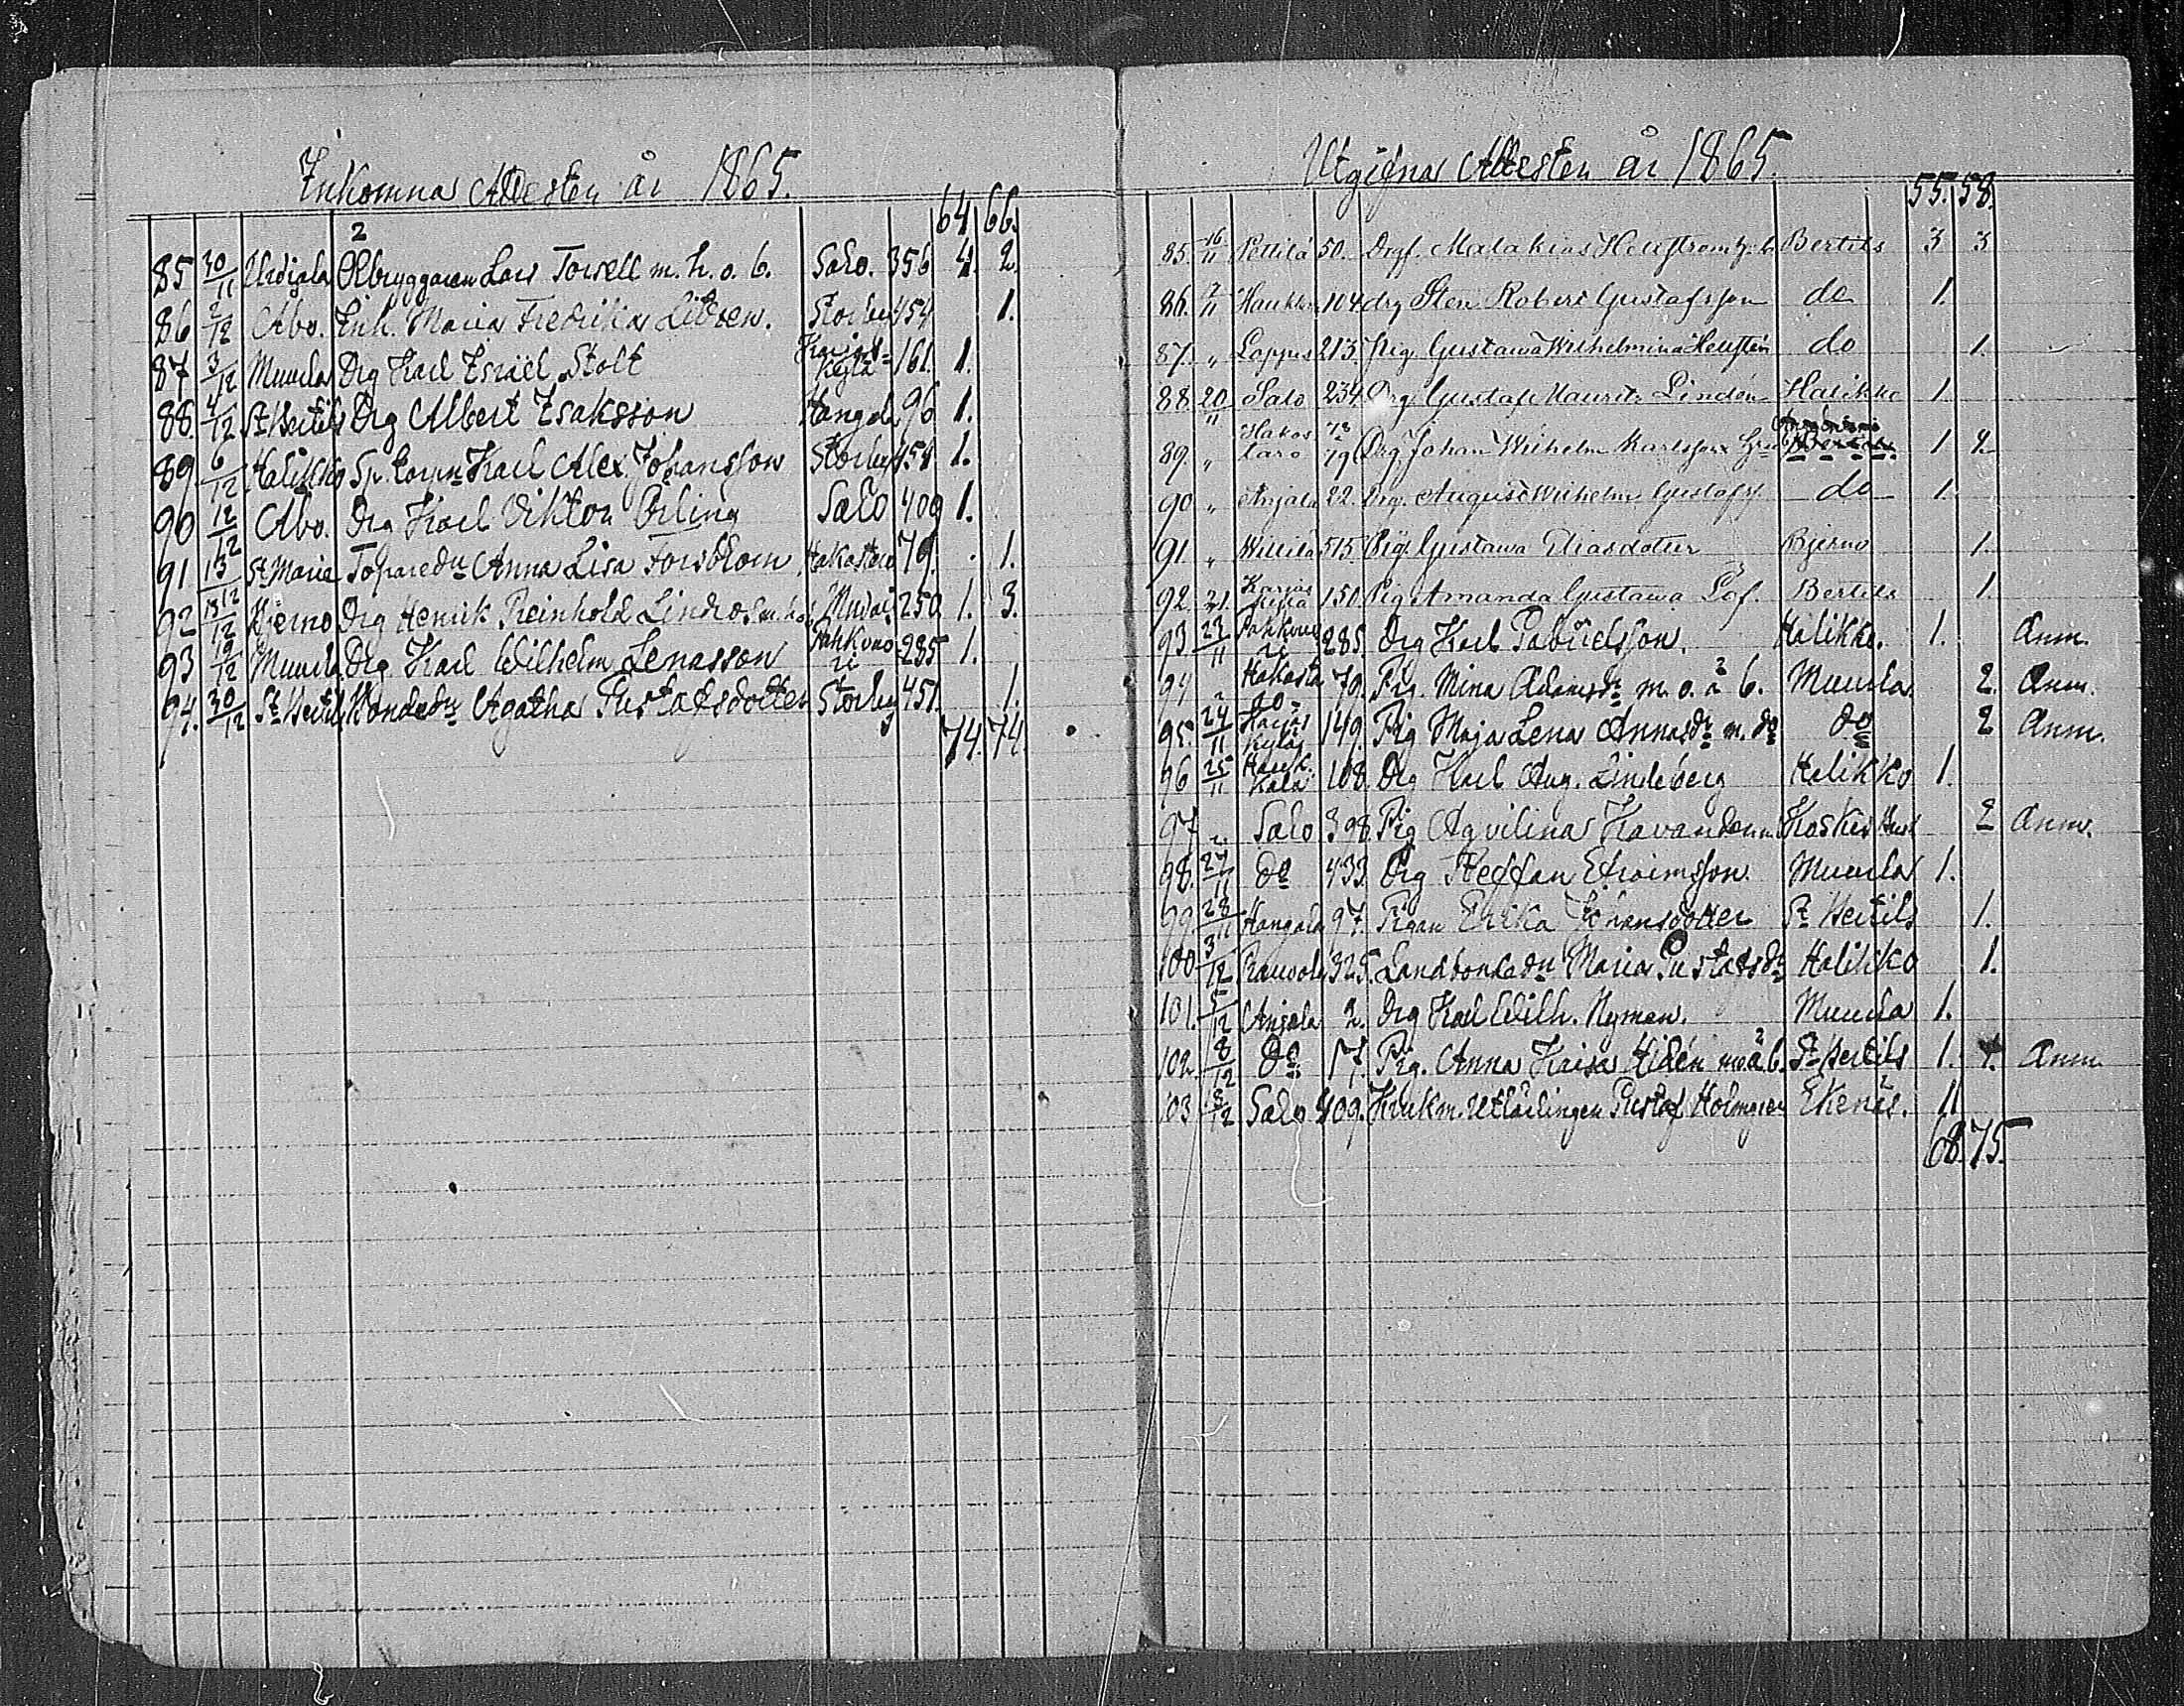 Inkomna Attester år 1865.
64 66.
85 30/11 Urdiala Ölbryggaren Lars Torsell m. h. o. b. Salo. 356 4. 2.
86 2/12 Åbo. Enk. Maria Fredrika Litoen. Storby 454 1.
87 3/12 Muurla Drg Karl Israël Stolt Karjas Kylä 161. 1.
88. 4/12 St Bertils Drg Albert Isaksson Hangola 96 1.
89 6/12 Halikko Sp. torpn Karl Alex. Johansson Storby 454 1.
90 12/12 Åbo. Drg Karl Viktor Örling Salo 409 1.
91 13/12 St Marie Anna Lisa Forsblom Hakastaro 79. 1.
92 Bjerno Drg Henrik Reinhold Lindros 250 1. 3.
93 19/12 Muurla Drg. Karl Wilhelm Lenasson 285 1.
94. 30/12 St Bertils Agatha Gustafsdotter Storby 451. 1.
74. 74.
Utgifna Attester år 1865.
55. 58.
85. 16/11 Pettilä 50. Malakias Bertils 3 3
86. Haukk 104 drg Sten Robert Gustafsson do 1.
87. „ Loppus 213. Pig. Gustawa Wilhelmina do 1.
88. 20/11 Salo 234. Drg. Gustaf Maurits Lindén Halikko 1
89. „ Hakostaro 78/79 Drg. Johan Wilhelm Karlsson 1
90 „ Anjala 22. Drg. August Wilhelm Gustafss. do 1.
91. „ 515. Pig. Gustawa Eliasdotter Bjerno 1.
92. 21. Karjaskylä 150. Pig Amanda Gustawa Löf. Bertils 1.
93 23/11 285. Drg Karl Gabrielsson. Halikko. 1. Anm.
94 „ Hakasta 79. Pig. Mina Adamsdr m. o. ä b. Muurla. 2. Anm.
95. 24/11 Karjas Kylä 149. Pig Maja Lena Annasdr m. dr do 2 Anm.
96 25/11 Haukkala 108. Drg Karl Aug. Lindeberg Halikko 1.
97 „ Salo 398. Pig Aqvilina Koskis 2 Anm.
98. 27/11 do 433. Drg Steffan Efraimsson. Muurla 1.
99. 28/11 Hangola 97. Pigan Erika Johansdotter St Bertils 1.
100. 3/12 325. Landbondedr Maria Gustafsdr Halikko 1.
101. 5/12 Anjala 2. Drg Karl Wilh. Nyman. Muurla 1.
102. 8/12 do 17. Pig. Anna Kaisa Hidén m. ä b. St Bertils 1. Anm
103. 8/12 Salo 409. Gustaf Holmgren Ekenäs.
68. 75.